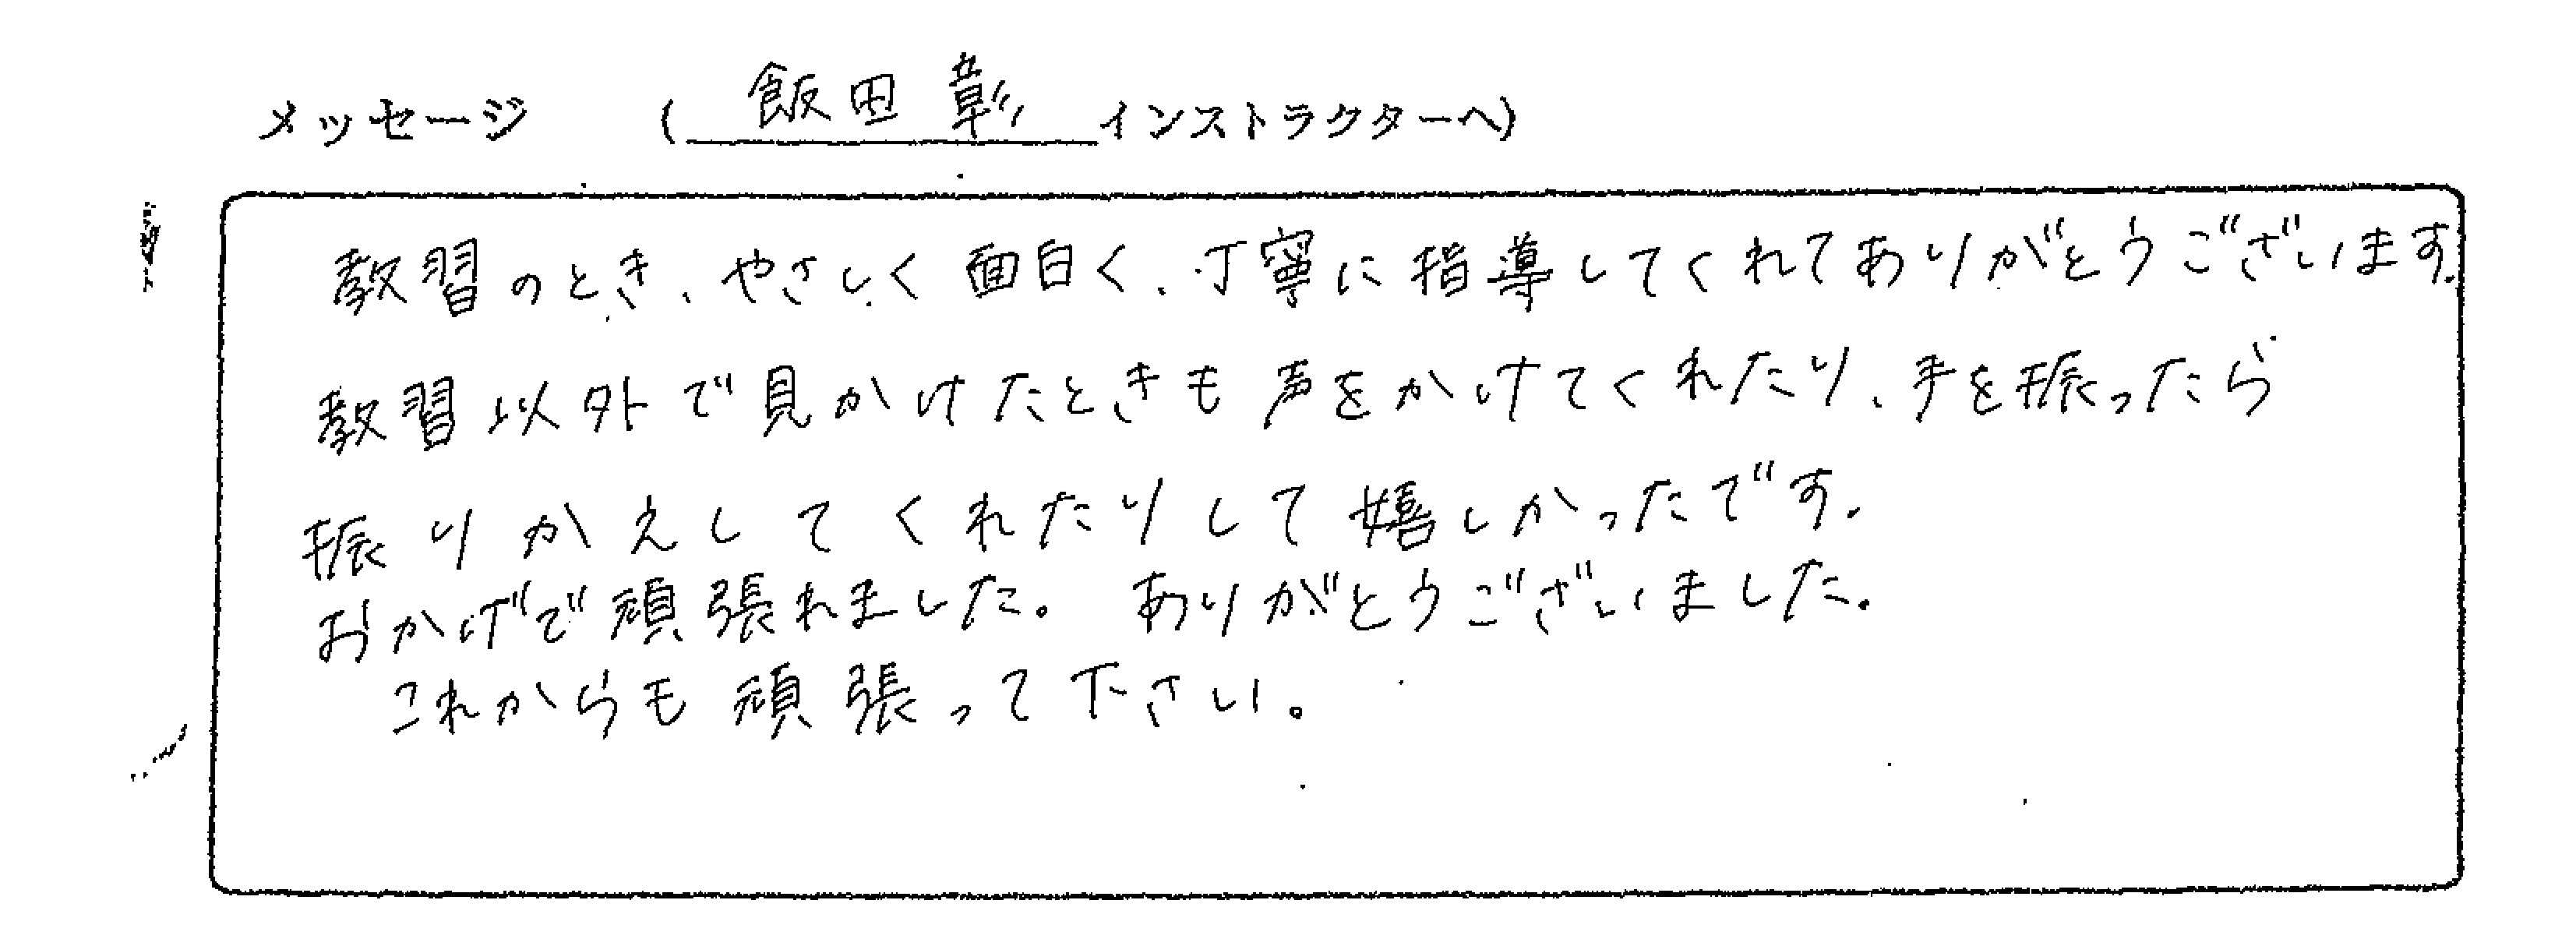 メッセージ （飯田 彰インストラクターへ）
教習のとき、やさしく面白く、丁寧に指導してくれてありがとうございます。
教習以外で見かけたときも声をかけてくれたり、手を振ったら
振りかえしてくれたりして嬉しかったです。
おかげで頑張れました。ありがとうございました。
これからも頑張って下さい。